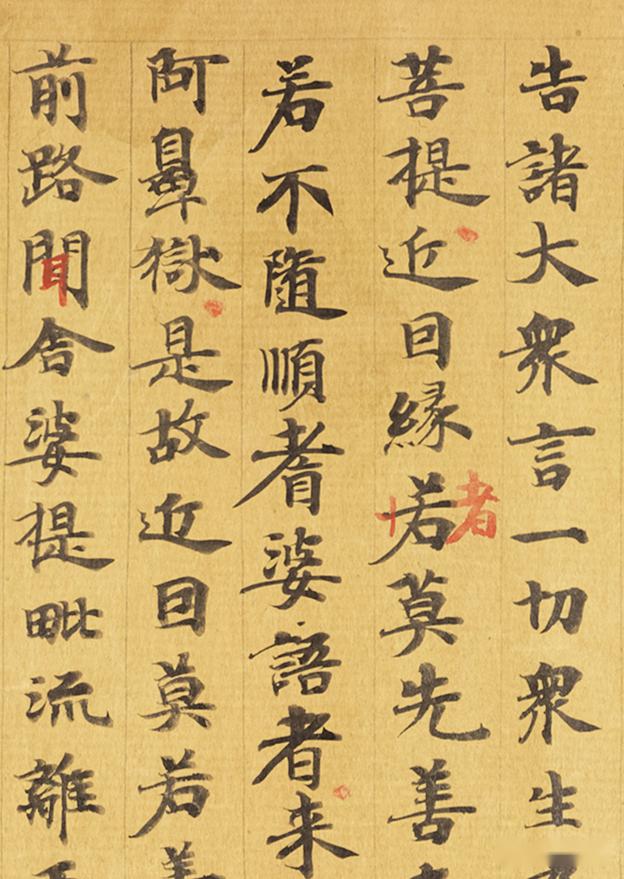 告諸大衆言一切衆生
菩提近囙縁若者莫先善
若不隨順耆婆語者来
阿鼻獄是故近囙莫若善
前路聞舍婆提毗流離